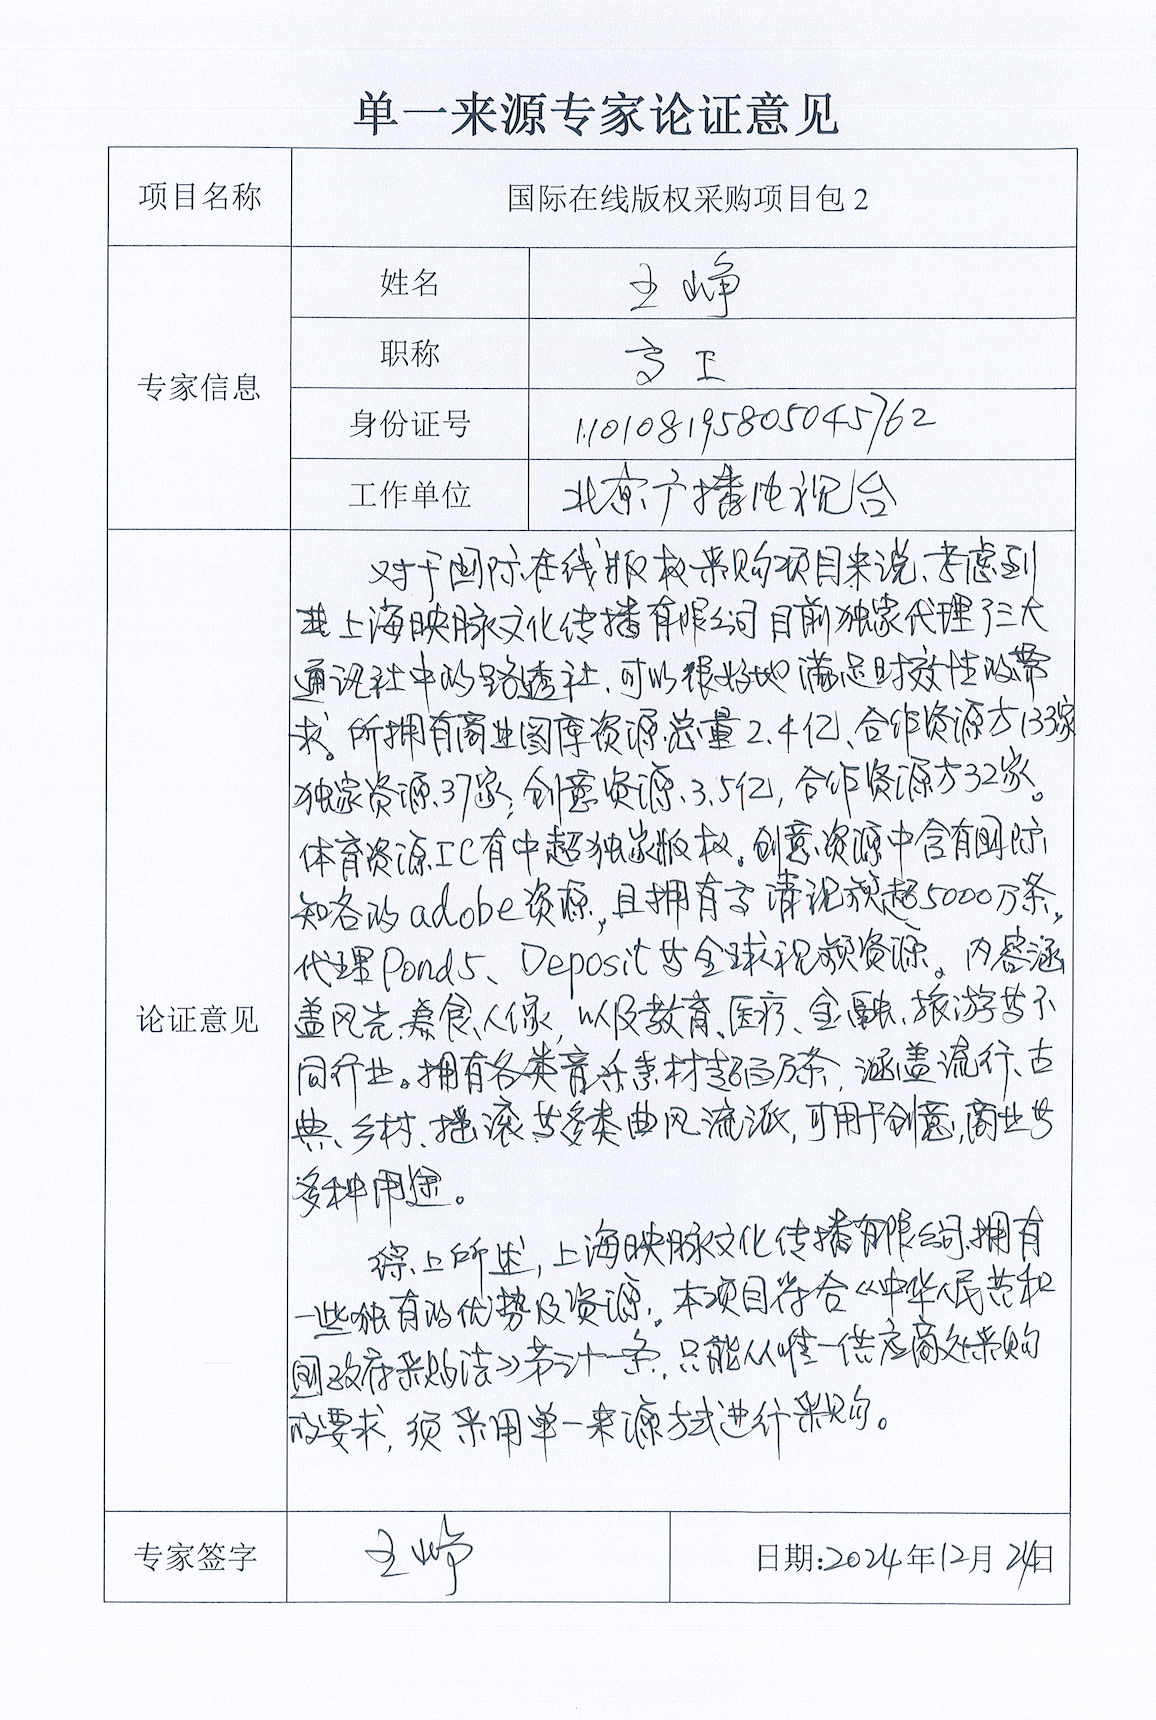 单一来源专家论证意见
项目名称
国际在线版权采购项目包2
专家信息
姓名
王峥
职称
高工
身份证号
110108195805045762
工作单位
北京广播电视台
论证意见
对于国际在线版权采购项目来说、考虑到
上海映脉文化传播有限公司目前独家代理了三大
通讯社中的路透社、可以很好地满足时效性的需
求。所拥有商业图库资源总量2.4亿、合作资源方133家
独家资源37家;创意资源3.5亿,合作资源方32家。
体育资源IC有中超独家版权。创意资源中含有国际
知名的adobe资源,且拥有高清视频超5000万条。
代理Pond5、Deposit等全球视频资源。内容涵
盖风光、美食、人像,以及教育、医疗、金融、旅游等不
同行业。拥有各类音乐素材超百万条,涵盖流行、古
典、乡村、摇滚等多类曲风流派,可用于创意,商业等
多种用途。
综上所述,上海映脉文化传播有限公司拥有
一些独有的优势及资源。本项目符合《中华人民共和
国政府采购法》第三十一条,只能从唯一供应商处采购
的要求,须采用单一来源方式进行采购。
专家签字
王峥
日期:2024年12月24日